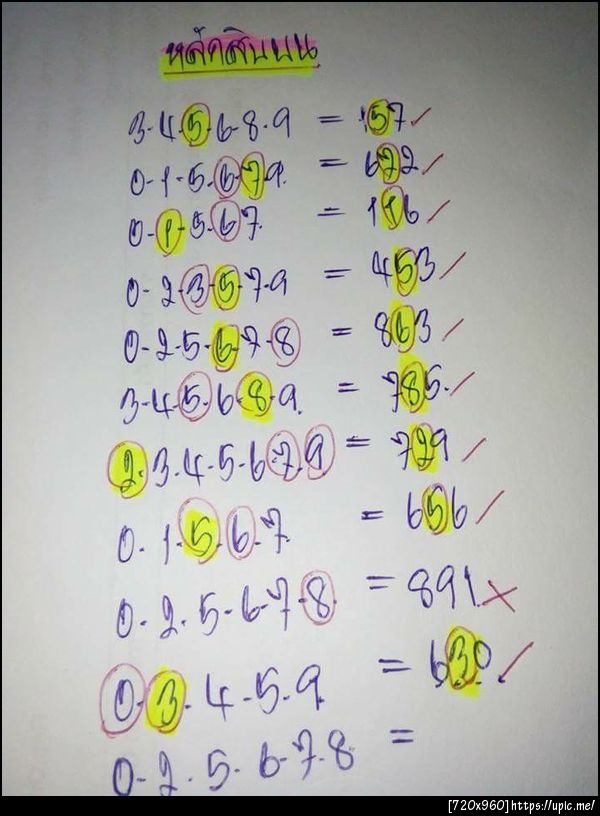 หลักสิบบน
3-4-5-6-8-9 = 157 ✓
0-1-5-6-7-9. = 672 ✓
0-1-5-67. = 116 ✓
0-2-3-5-7-9 = 453 ✓
0-2-5-6-7-8 = 863 ✓
3-4-5-6-8-9. = 785. ✓
2-3-4-5-6-7-9 = 729 ✓
0-1-5-6-7 = 656 ✓
0-2-5-6-7-8. = 891. ✗
0-3-4-5-9. = 630 ✓
0-2-5-6-7-8 =
[720x960] https://upic.me/